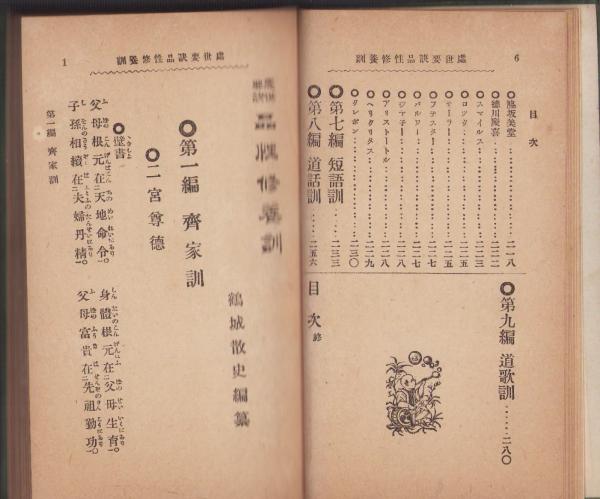 6
處世要訣品性修養訓
目次
◎脇坂美堂‥‥‥‥二一八
◎德川慶喜‥‥‥‥二二二
◎スマイルス‥‥‥‥二二三
◎ロック‥‥‥‥二二五
◎フオスター‥‥‥‥二二七
◎アリストートル‥‥‥‥二二八
◎ヘリクリタス‥‥‥‥二二九
◎タレボン‥‥‥‥二三〇
◎第七編 短語訓‥‥‥‥二三三
◎第八編 道話訓‥‥‥‥二五六
◎第九編 道歌訓‥‥‥‥二八〇
目次 終
處世要訣品性修養訓
1
品性修養訓
鶴城散史編纂
◎第一編 齊家訓
◎二宮尊德
◎壁書
父母根元在二天地命令一。
身體根元在二父母生育一。
子孫相續在二夫婦丹精一。
父母富貴在二先祖勤功一。
第一編 齊家訓